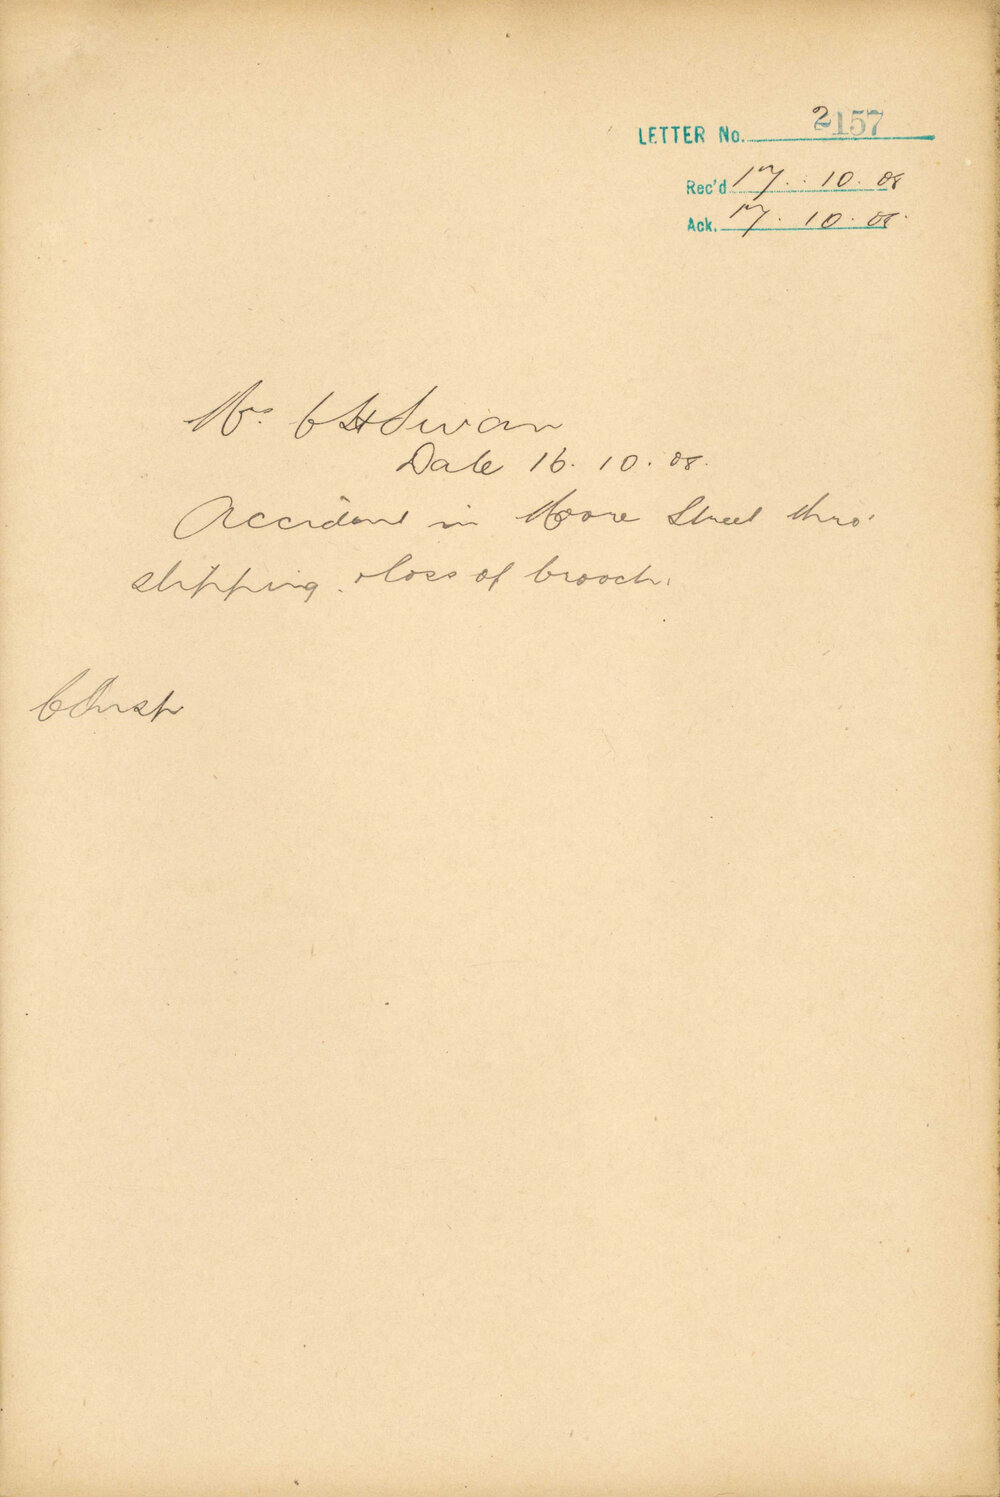 LETTER No. 2157
Rec'd 17. 10. 08
Ack. 17. 10. 08.
Mrs. C H Swan
Date 16. 10. 08.
Accident in Moore Street thro'
slipping. & loss of brooch.
C Insp